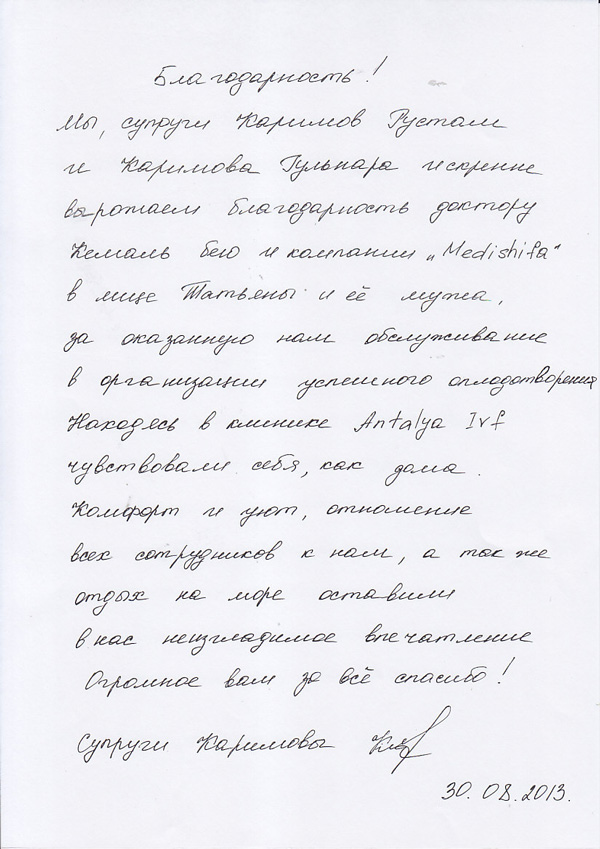 Благодарность!
Мы, супруги Каримов Рустам
и Каримова Гульнара искренне
выротаем благодарность доктору
Кемаль бею и компании „Medishifa“
в лице Татьяны и её мужа,
за оказанную нам обслуживание
в организации успешного оплодотворения
Находясь в клинике Antalya Ivf
чувствовали себя, как дома.
Комфорт и уют, отношение
всех сотрудников к нам, а так же
отдых на море оставили
в нас неизгладимое впечатление
Огромное вам за всё спасибо!
Супруги Каримовы
30.08.2013.